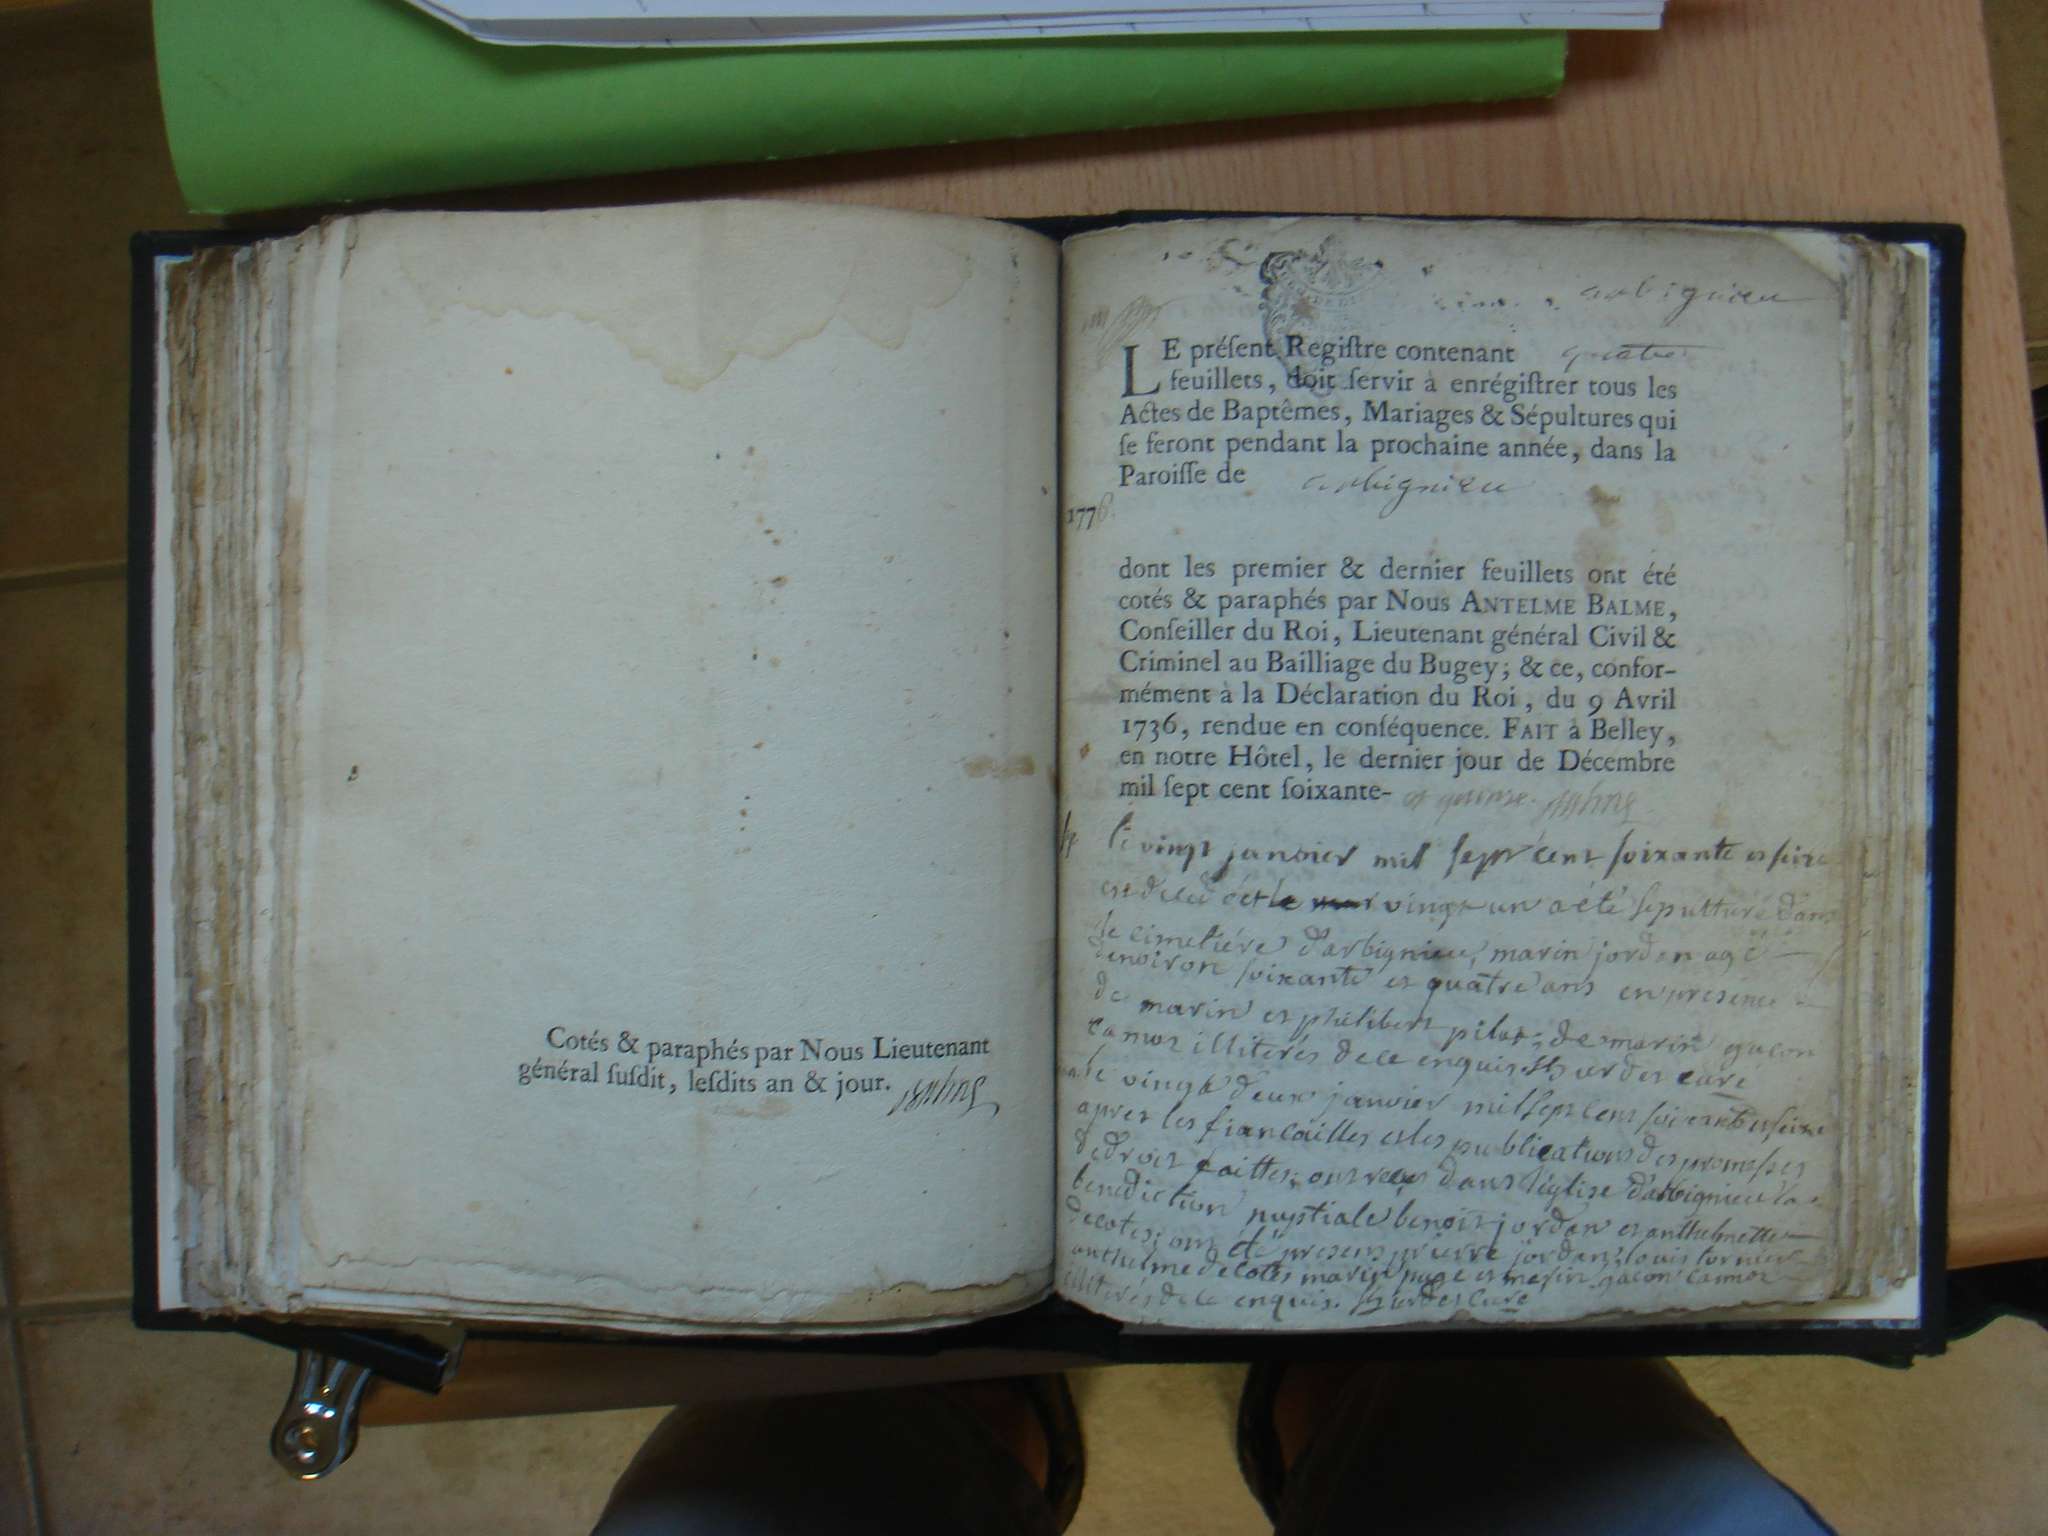 Cotés & paraphés par Nous Lieutenant
général ſuſdit, leſdits an & jour.
arbignieu
LE préſent Regiſtre contenant quatre
feuillets, doit ſervir à enrégiſtrer tous les
Actes de Baptêmes, Mariages & Sépultures qui
ſe feront pendant la prochaine année, dans la
Paroiſſe de arbignieu
1776.
dont les premier & dernier feuillets ont été
cotés & paraphés par Nous ANTELME BALME,
Conſeiller du Roi, Lieutenant général Civil &
Criminel au Bailliage du Bugey; & ce, confor-
mément à la Déclaration du Roi, du 9 Avril
1736, rendue en conſéquence. FAIT à Belley,
en notre Hôtel, le dernier jour de Décembre
mil ſept cent ſoixante- et quinze.
le vingt janvier mil sept cent soixante et seize
est decedé et le vingt un a été sepulturé dans
le cimetiére d'arbignieu, marin jordan agé
denviron soixante et quatre ans en presence
de marin et philibert pilot, de marin gacon
camoz illiterés de ce enquis curé
le vingt deux janvier mil sept cent soixante et seize
apres les fiancailles et les publications des promesses
de droit faittes, ont reçu dans l'église d'arbignieu la
benediction nuptiale benoit jordan et anthelmette
decotes; ont été presens pierre jordan, louis tornier
anthelme decotes marin puge et marin gacon camoz
illiterés de ce enquis. curé